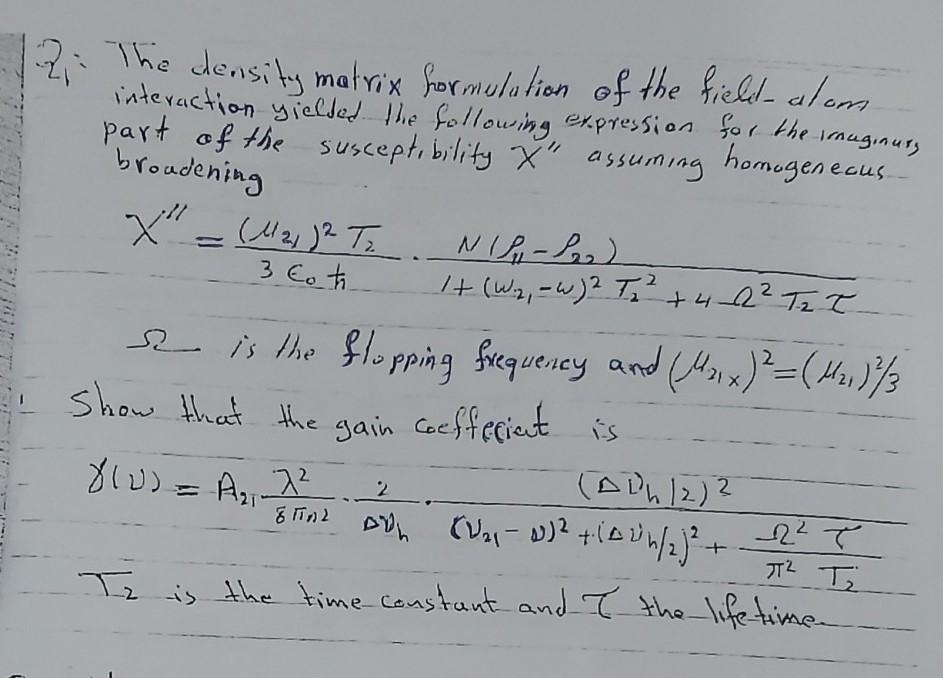 Q: The density matrix formulation of the field-atom
interaction yielded the following expression for the imaginary
part of the susceptibility χ'' assuming homogeneous
broadening
χ'' = (μ₂₁)² T₂ / 3 ε₀ ħ · N(ρ₁₁-ρ₂₂) / 1 + (ω₂₁-ω)² T₂² + 4 Ω² T₂ τ
Ω is the flopping frequency and (μ₂₁ₓ)² = (μ₂₁)²/3
Show that the gain coeffecient is
γ(ν) = A₂₁ λ² / 8πn² · 2 / Δνₕ · (Δνₕ/2)² / (ν₂₁-ν)² + (Δνₕ/2)² + Ω² τ / π² T₂
T₂ is the time constant and τ the life time